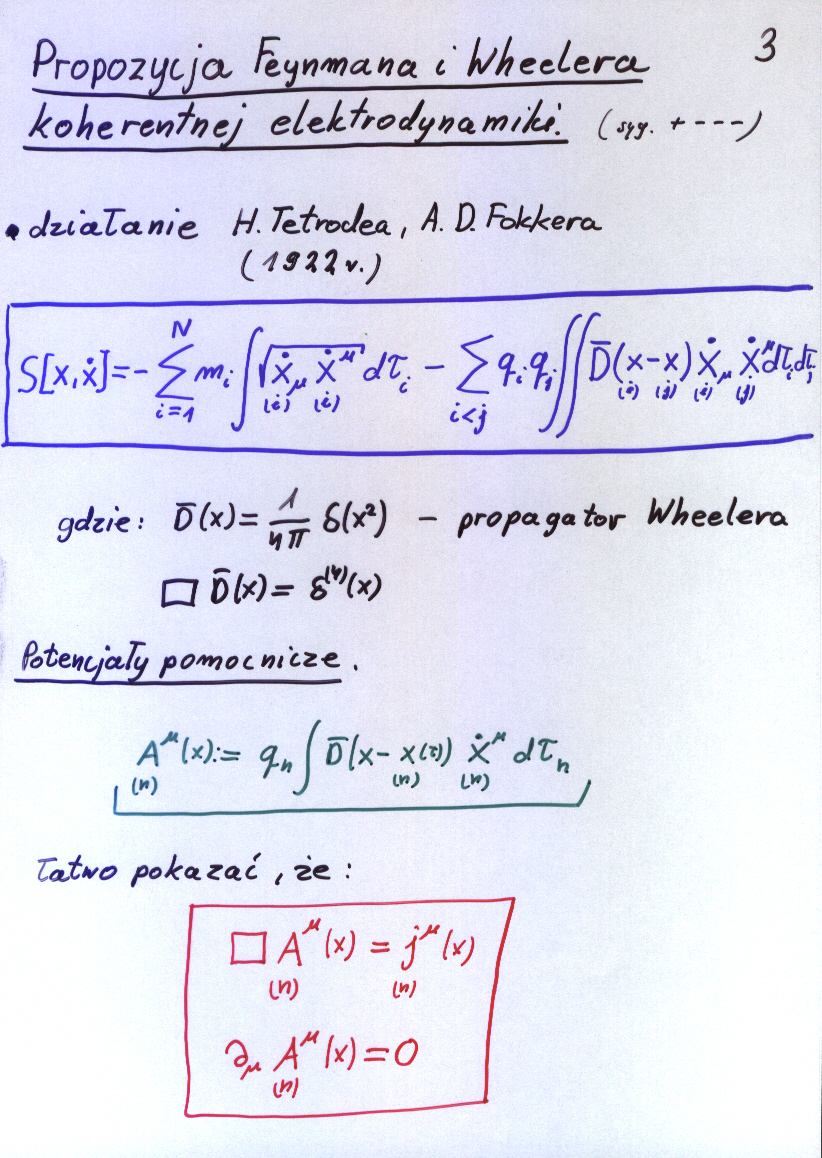 3
Propozycja Feynmana i Wheelera
koherentnej elektrodynamiki. (syg. + - - -)
• działanie H. Tetrodea, A. D. Fokkera
(1922 r.)
S[x,ẋ]=-∑_{i=1}^{N} m_i ∫√(ẋ_μ(i) ẋ^μ(i)) dτ_i - ∑_{i<j} q_i q_j ∬ D̄(x(i)-x(j)) ẋ_μ(i) ẋ^μ(j) dτ_i dτ_j
gdzie: D̄(x)= 1/4π δ(x²) - propagator Wheelera
□ D̄(x)= δ^{(4)}(x)
Potencjały pomocnicze.
A^μ(n)(x):= q_n ∫ D̄(x- x(n)(τ)) ẋ^μ(n) dτ_n
Łatwo pokazać, że:
□ A^μ(n)(x) = j^μ(n)(x)
∂_μ A^μ(n)(x)=0